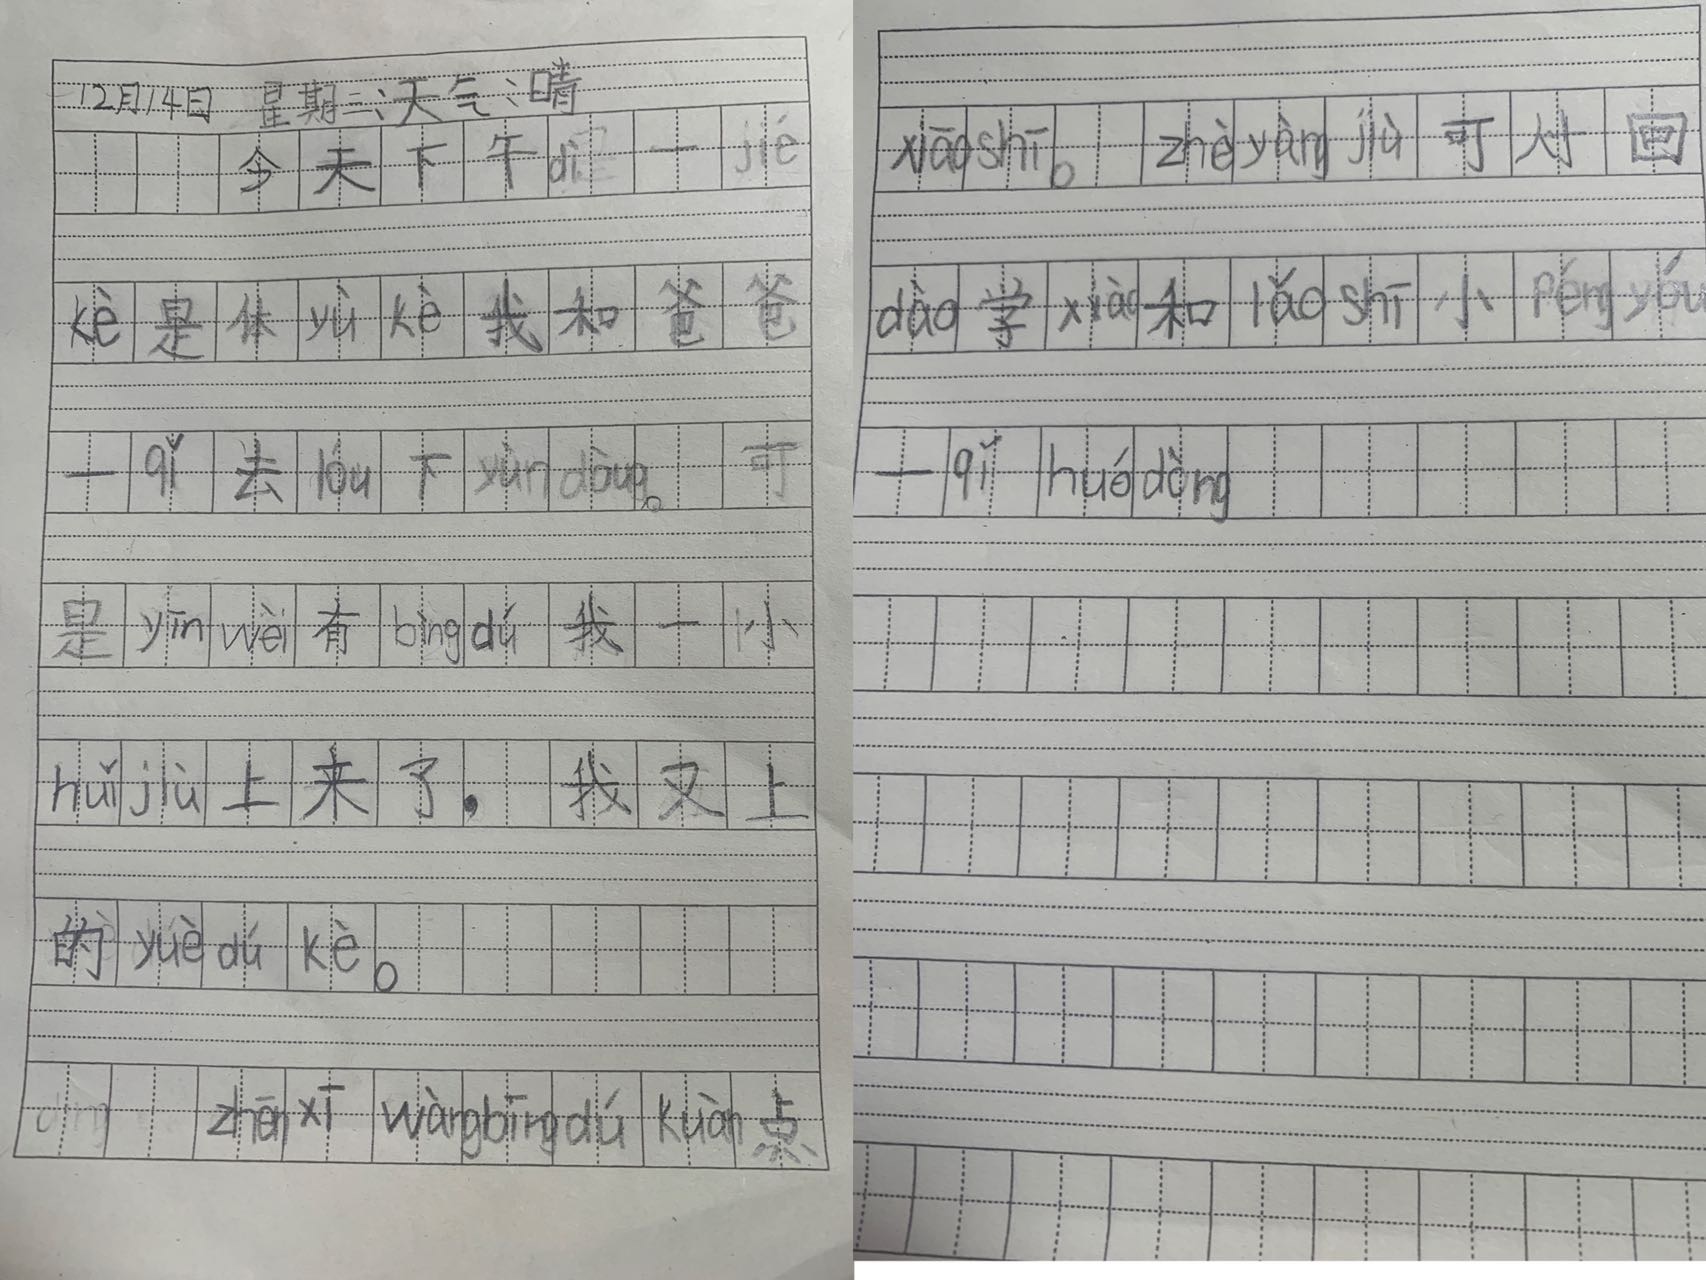 12月14日 星期三 天气:晴
今天下午dì一jié
kè是体yù kè我和爸爸
一qǐ去lóu下yùn dòng。可
是yīn wèi有bìng dú我一小
huǐ jiù上来了,我又上
的yuè dú kè。
zhēn xī wàng bīng dú kuàn点
xiāo shī。zhè yàng jiù可以回
dào学xiào和lǎo shī小péng yóu
一qǐ huó dòng